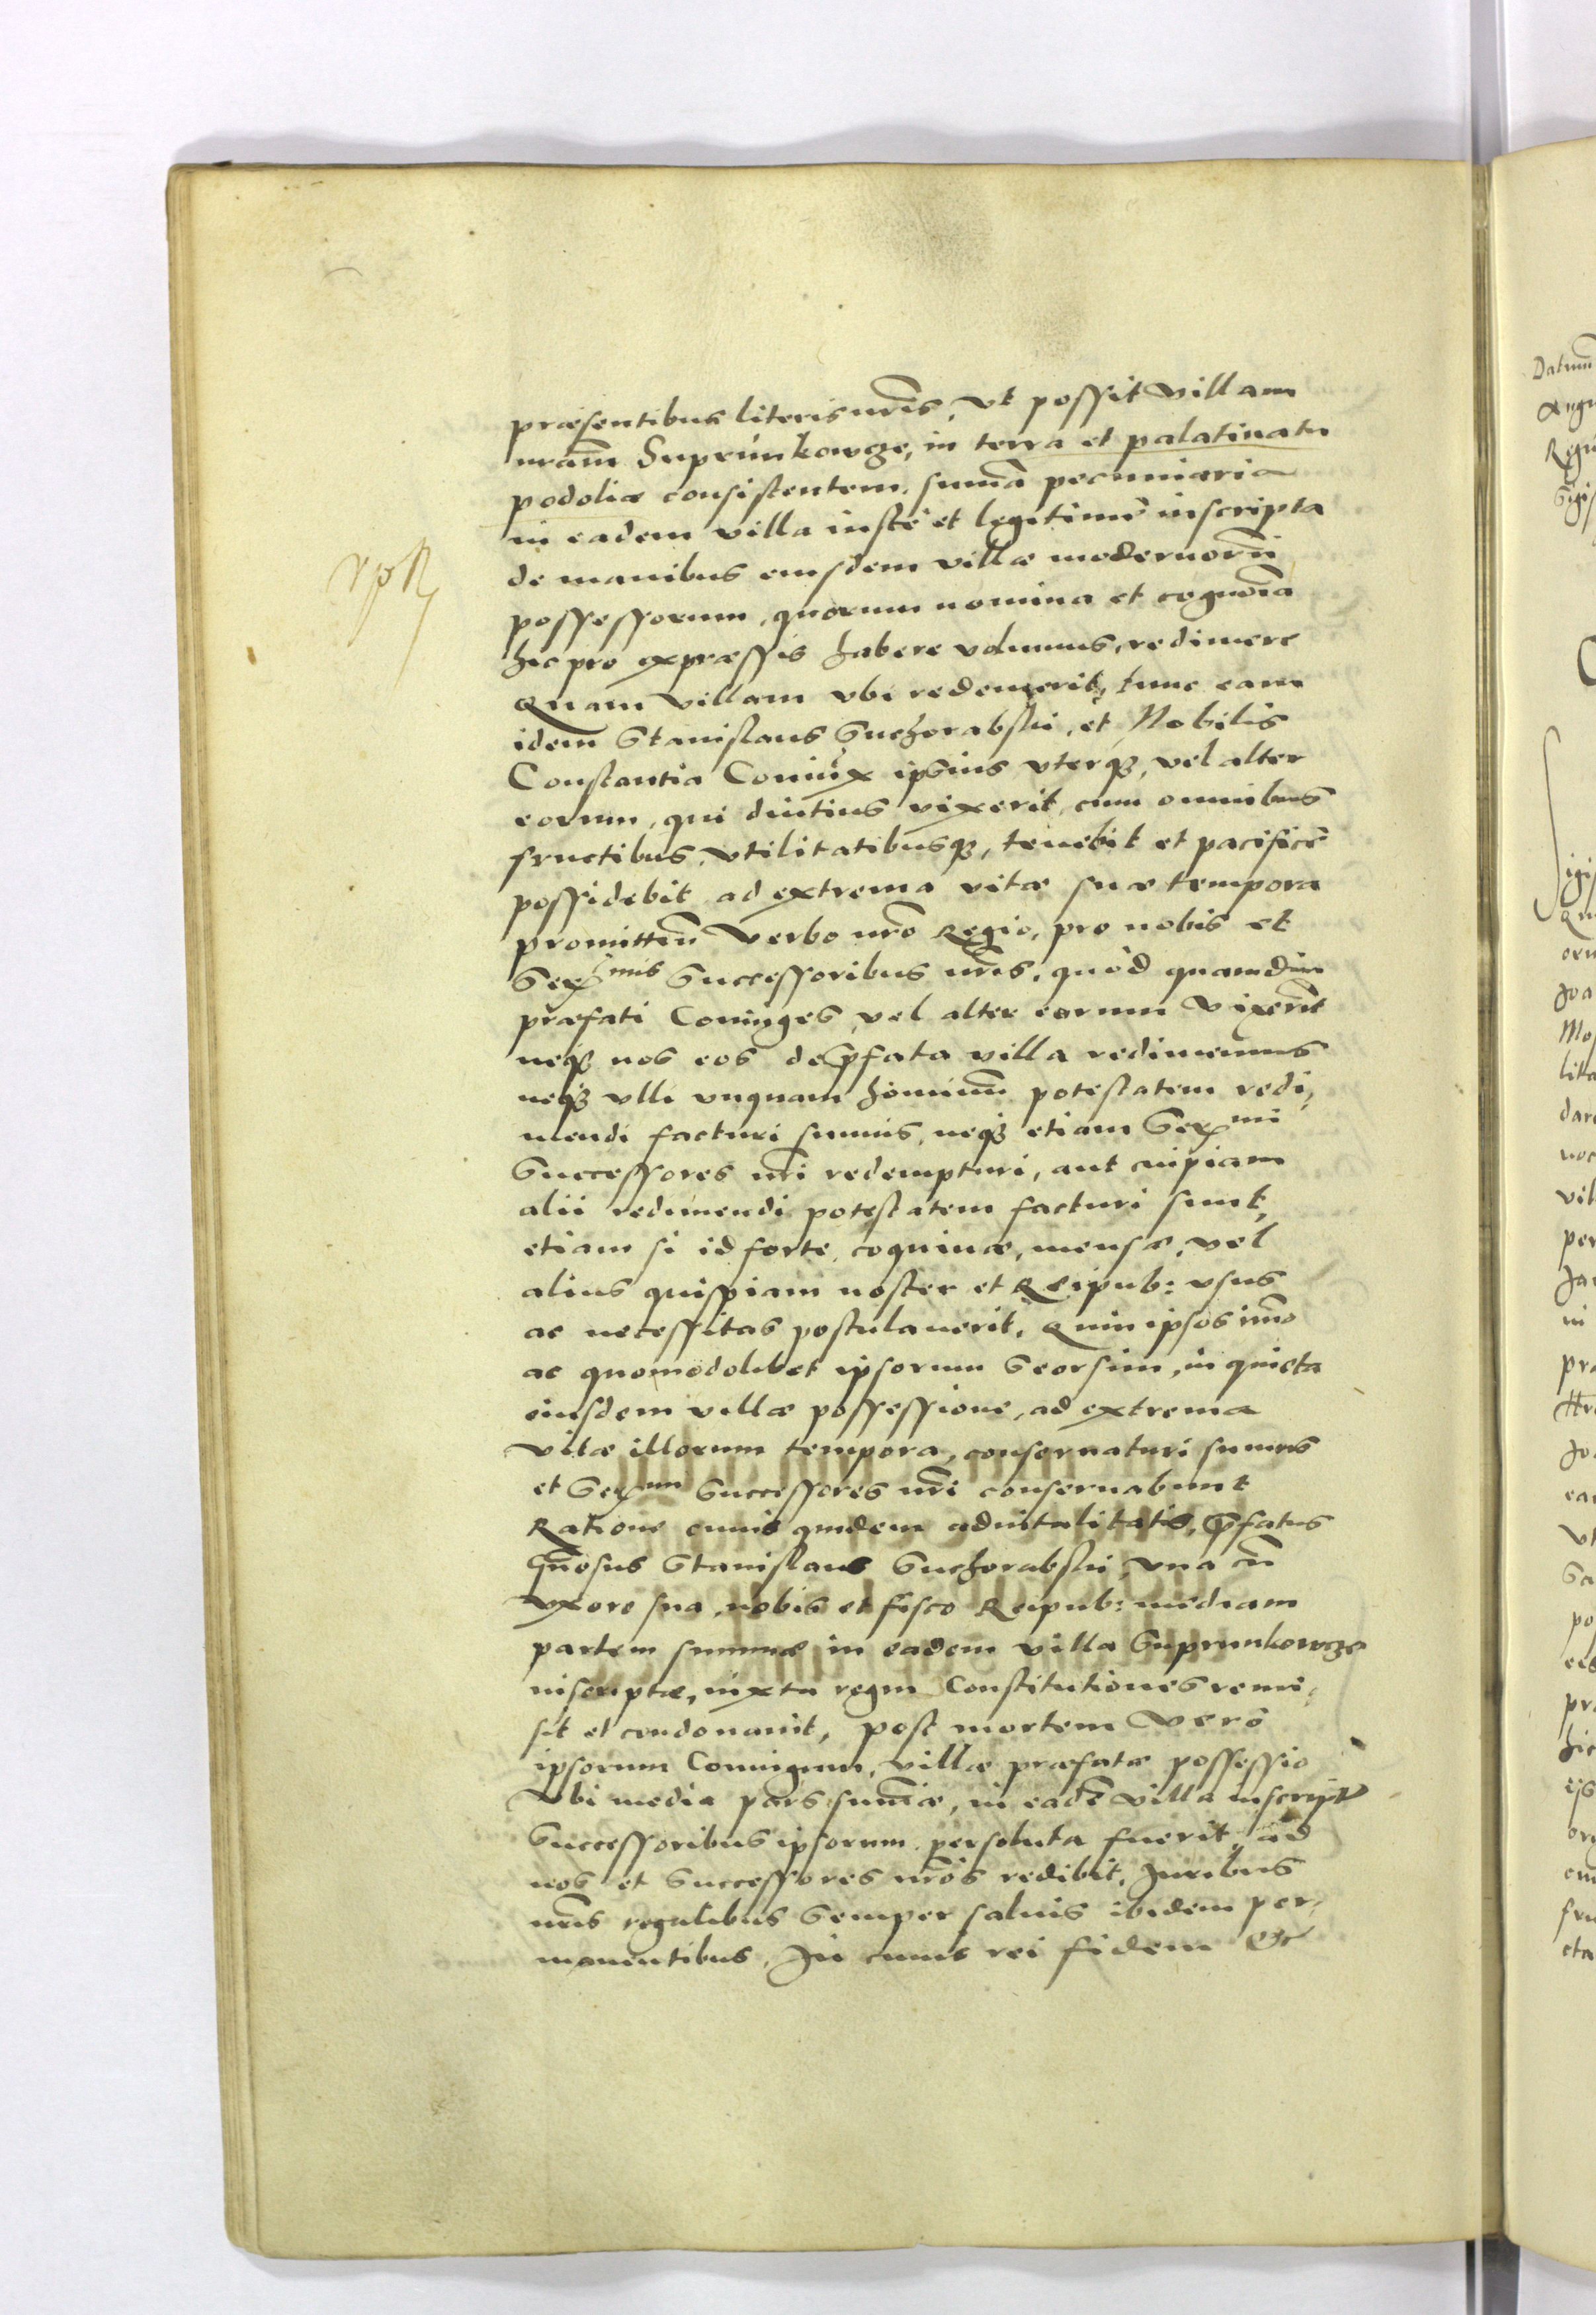 præsentibus literis nr̃is, vt possit Villam
nr̃am Suprunkowcze, in terra et palatinatu
podoliæ consistentem, sum̃a pecuniaria
in eadem villa iuste et legitime inscripta
de manibus eiusdem villæ modernorũ
possessorum, quorum nomina et cognõia
hic pro expressis habere volumus, redimere
Quam villam vbi redemerit, tunc eam
idem Stanislaus Suchorabski, et Nobilis
Constantia Coniux ipsius vterq;, vel alter
eorum, qui diutius vixerit, cum omnibus
fructibus, vtilitatibusq;, tenebit et pacifice
possidebit ad extrema vitæ suæ tempora
promitten̄ Verbo nr̃o Regio, pro nobis et
Ser^mis Successoribus nr̃is, quod quamdiu
præfati Coniuges vel alter eorum vixerit
neq; nos eos de p̃fata villa redimemus
neq; vlli vnquam hominũ potestatem redi,
mendi facturi sumus, neq; etiam Ser^mi
Successores nr̃i redempturi, aut cuipiam
alii redimendi potestatem facturi sunt,
etiam si id forte coquinæ, mensæ, vel
alius quispiam noster et Reipub: vsus
ac necessitas postulauerit, Quin ipsos imo
ac quomodolibet ipsorum seorsim, in quieta
eiusdem villæ possessione, ad extrema
vitæ illorum tempora, conseruaturi sumus
et Ser^mi Successores nr̃i conseruabunt
Ratione cuius quidem aduitalitatis, p̃fatus
Gn̄osus Stanislaus Suchorabski, vna cũ
vxore sua, nobis et fisco Reipub: mediam
partem summæ in eadem villa Suprunkowcze
inscriptæ, iuxta regni Constitutiones remi,
sit et condonauit, post mortem vero
ipsorum Coniugum, villæ præfatæ possessio
Vbi media pars sum̃æ, in eadẽ villa inscript
Successoribus ipsorum persoluta fuerit, ad
nos et Successores nr̃os redibit, Iuribus
nr̃is regalibus semper saluis ibidem per,
manentibus, In cuius rei fidem &c